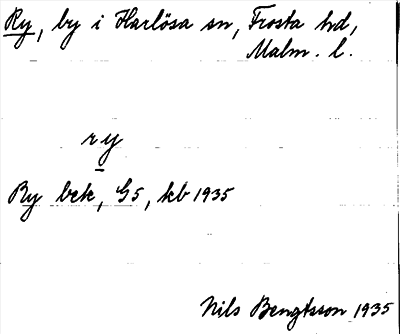 Ry, by i Harlösa sn, Frosta hd,
Malm. l.
ry
Ry bck, G5, kb 1935
Nils Bengtsson 1935